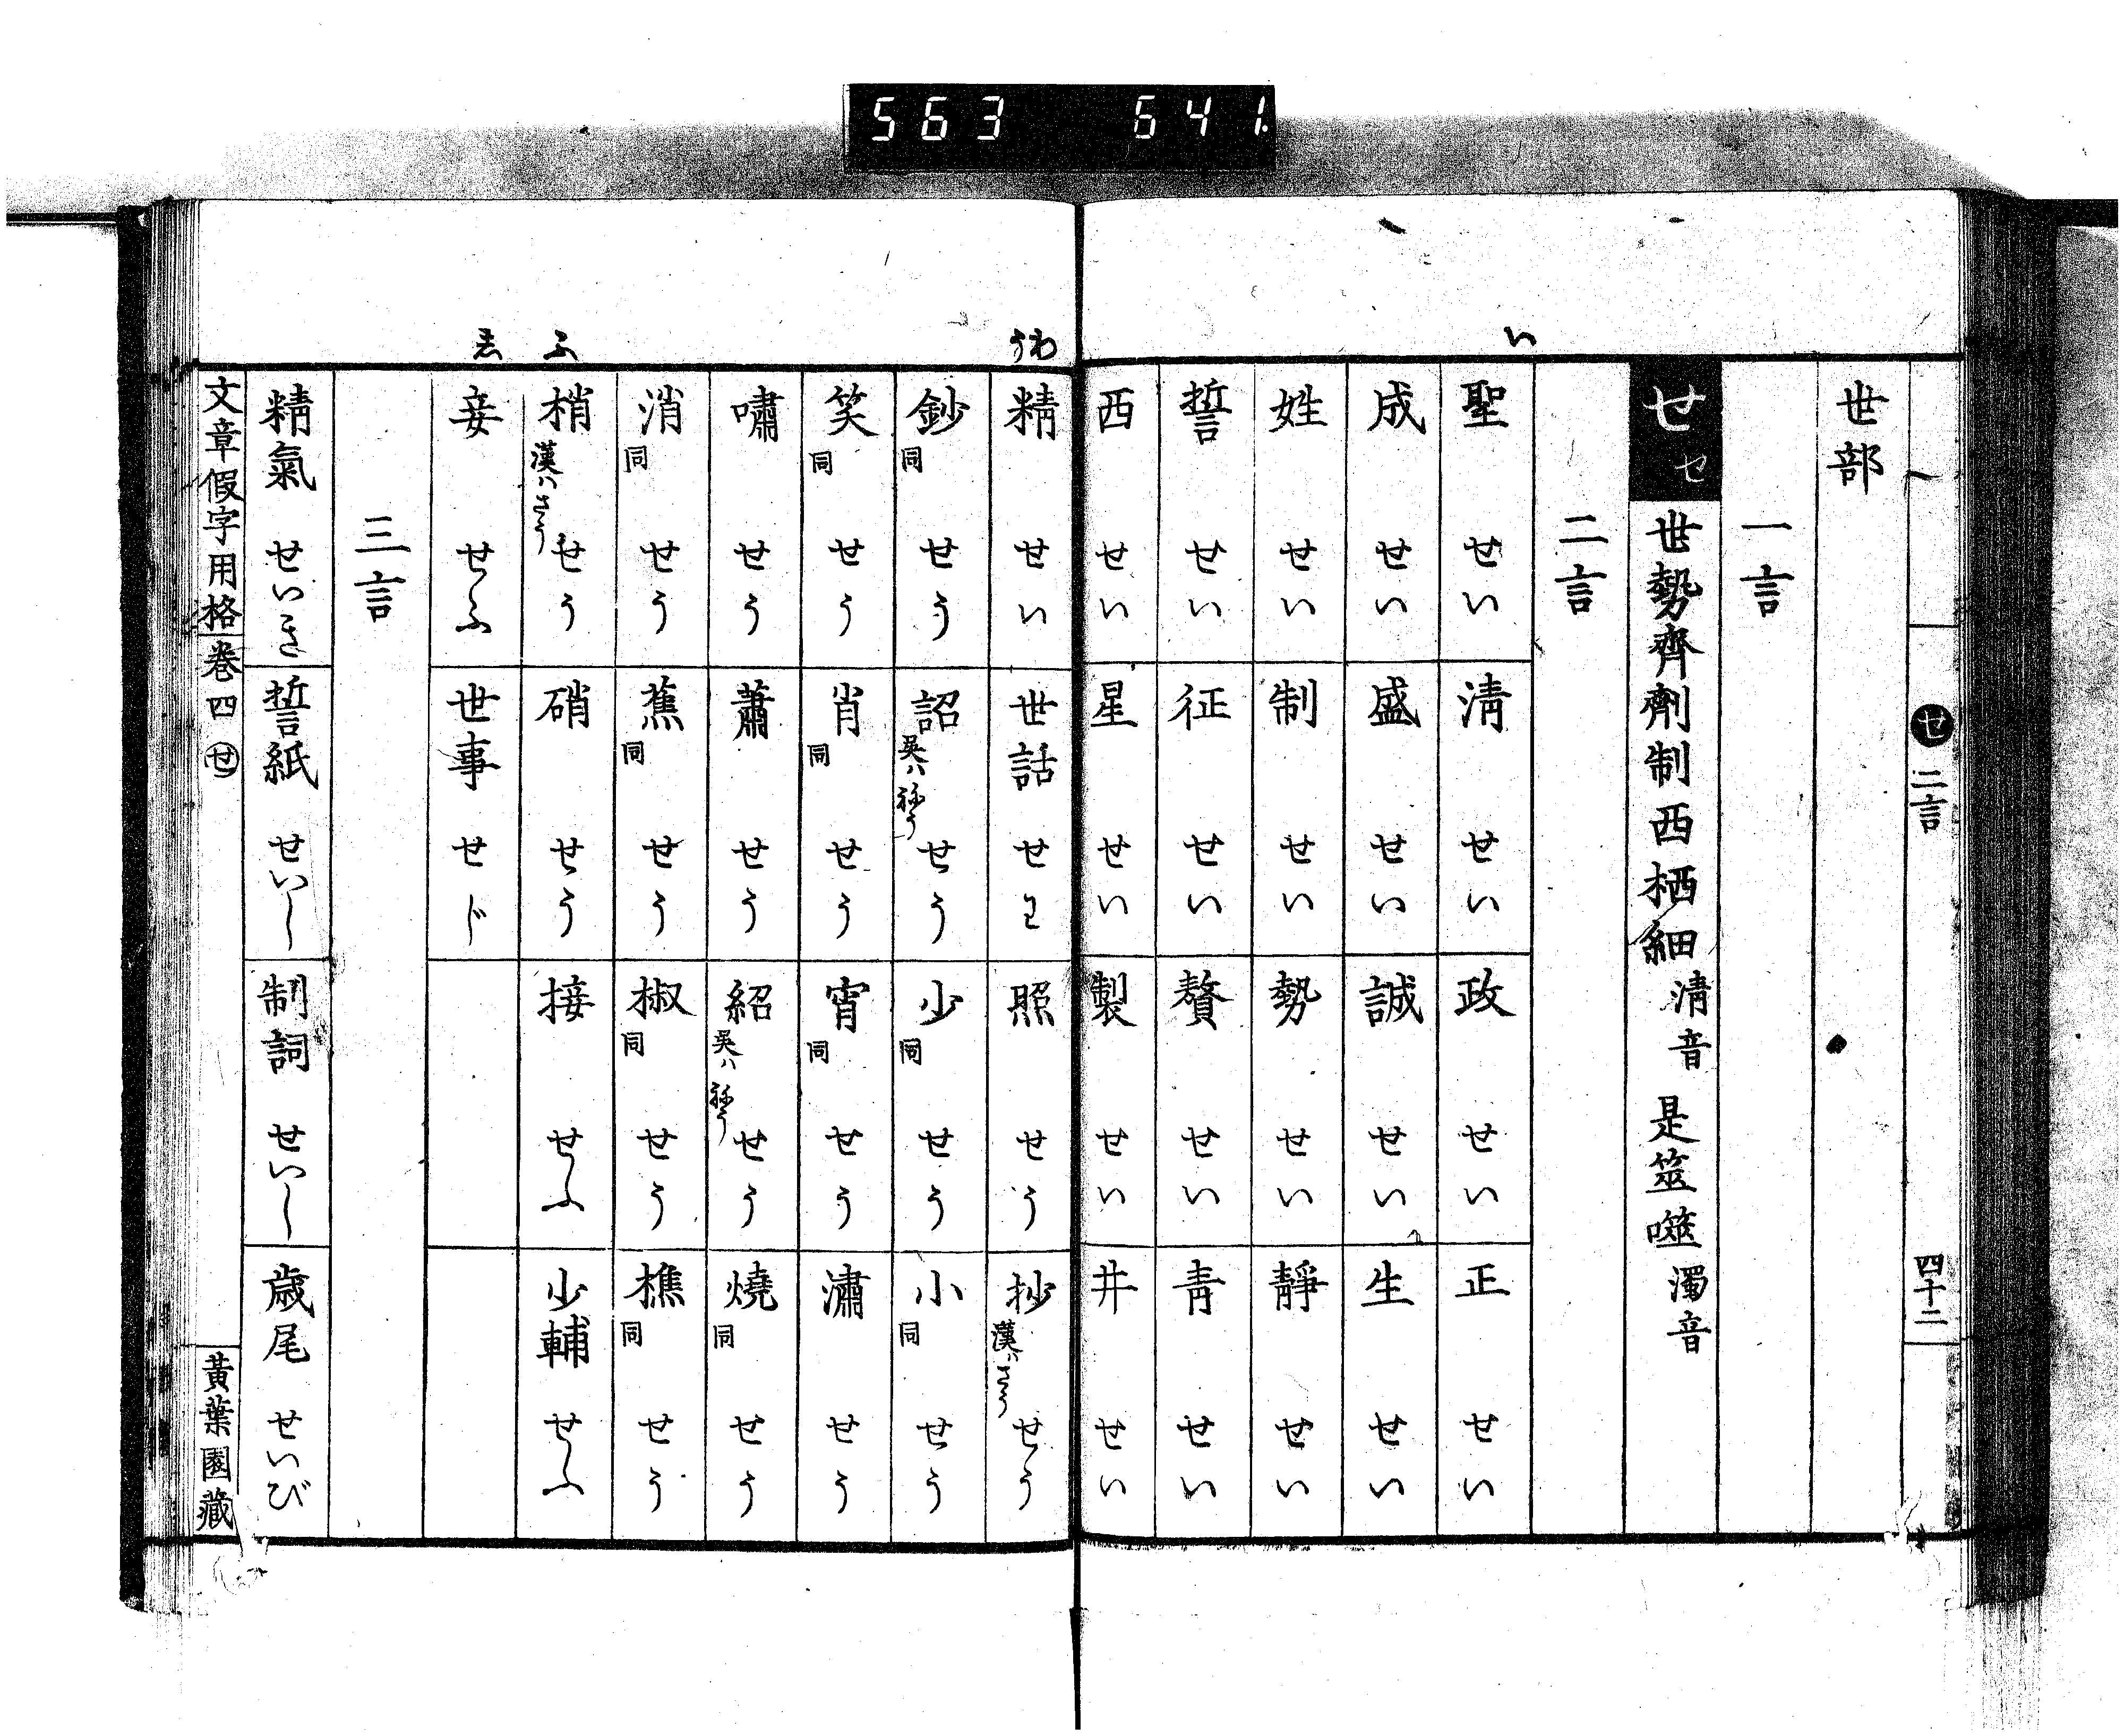 563 641.
せ 二言 四十二
世部
一言
せ セ 世勢齊劑制西栖細 淸音 是筮噬 濁音
二言
い
聖 せい 淸 せい 政 せい 正 せい
成 せい 盛 せい 誠 せい 生 せい
姓 せい 制 せい 勢 せい 靜 せい
誓 せい 征 せい 贅 せい 靑 せい
西 せい 星 せい 製 せい 井 せい
わ
う
精 せい 世話 せわ 照 せう 抄 漢ハさう せう
鈔 同 せう 詔 吳ハ ねう せう 少 同 せう 小 同 せう
笑 同 せう 肖 同 せう 宵 同 せう 瀟 せう
嘯 せう 蕭 せう 紹 吳ハ ねう せう 燒 同 せう
消 同 せう 蕉 同 せう 椒 同 せう 樵 同 せう
ふ
梢 漢ハさう せう 硝 せう 接 せふ 少輔 せふ
し
妾 せふ 世事 せじ
三言
精氣 せいき 誓紙 せいし 制詞 せいし 歳尾 せいび
文章假字用格 卷四 せ 黃葉園藏